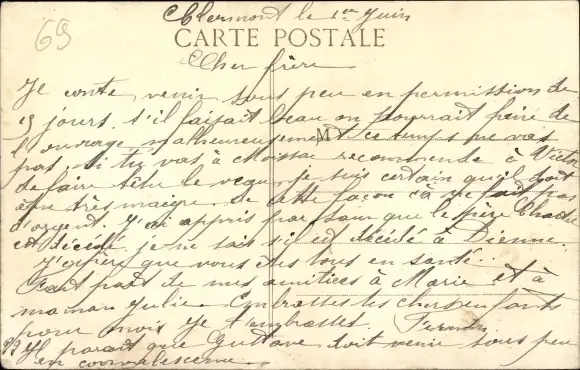 69
Clermont le 1er Juin
CARTE POSTALE
Cher frère
Je conte venir sous peu en permission de
jours. s'il faisait beau on pourrait faire de
l'ouvrage malheureusement ce temps pas
pas. Si tu vas à Moissac recommende à Victor
de faire têtu le je suis certain qu'il doit
être très maigre. de cette façon çà ne fait pas
d'argent. J'ai appris par sœur que le père
est décédé. je ne sais s'il est décédé à Vienne.
J'espère que vous êtes tous en santé.
Fait part de mes amitiées à Marie et à
maman Julie. Embrasses les chers enfants
pour mois je t'embrasses. Fermin
Il parait que Gustave doit venir sous peu
en convalescence